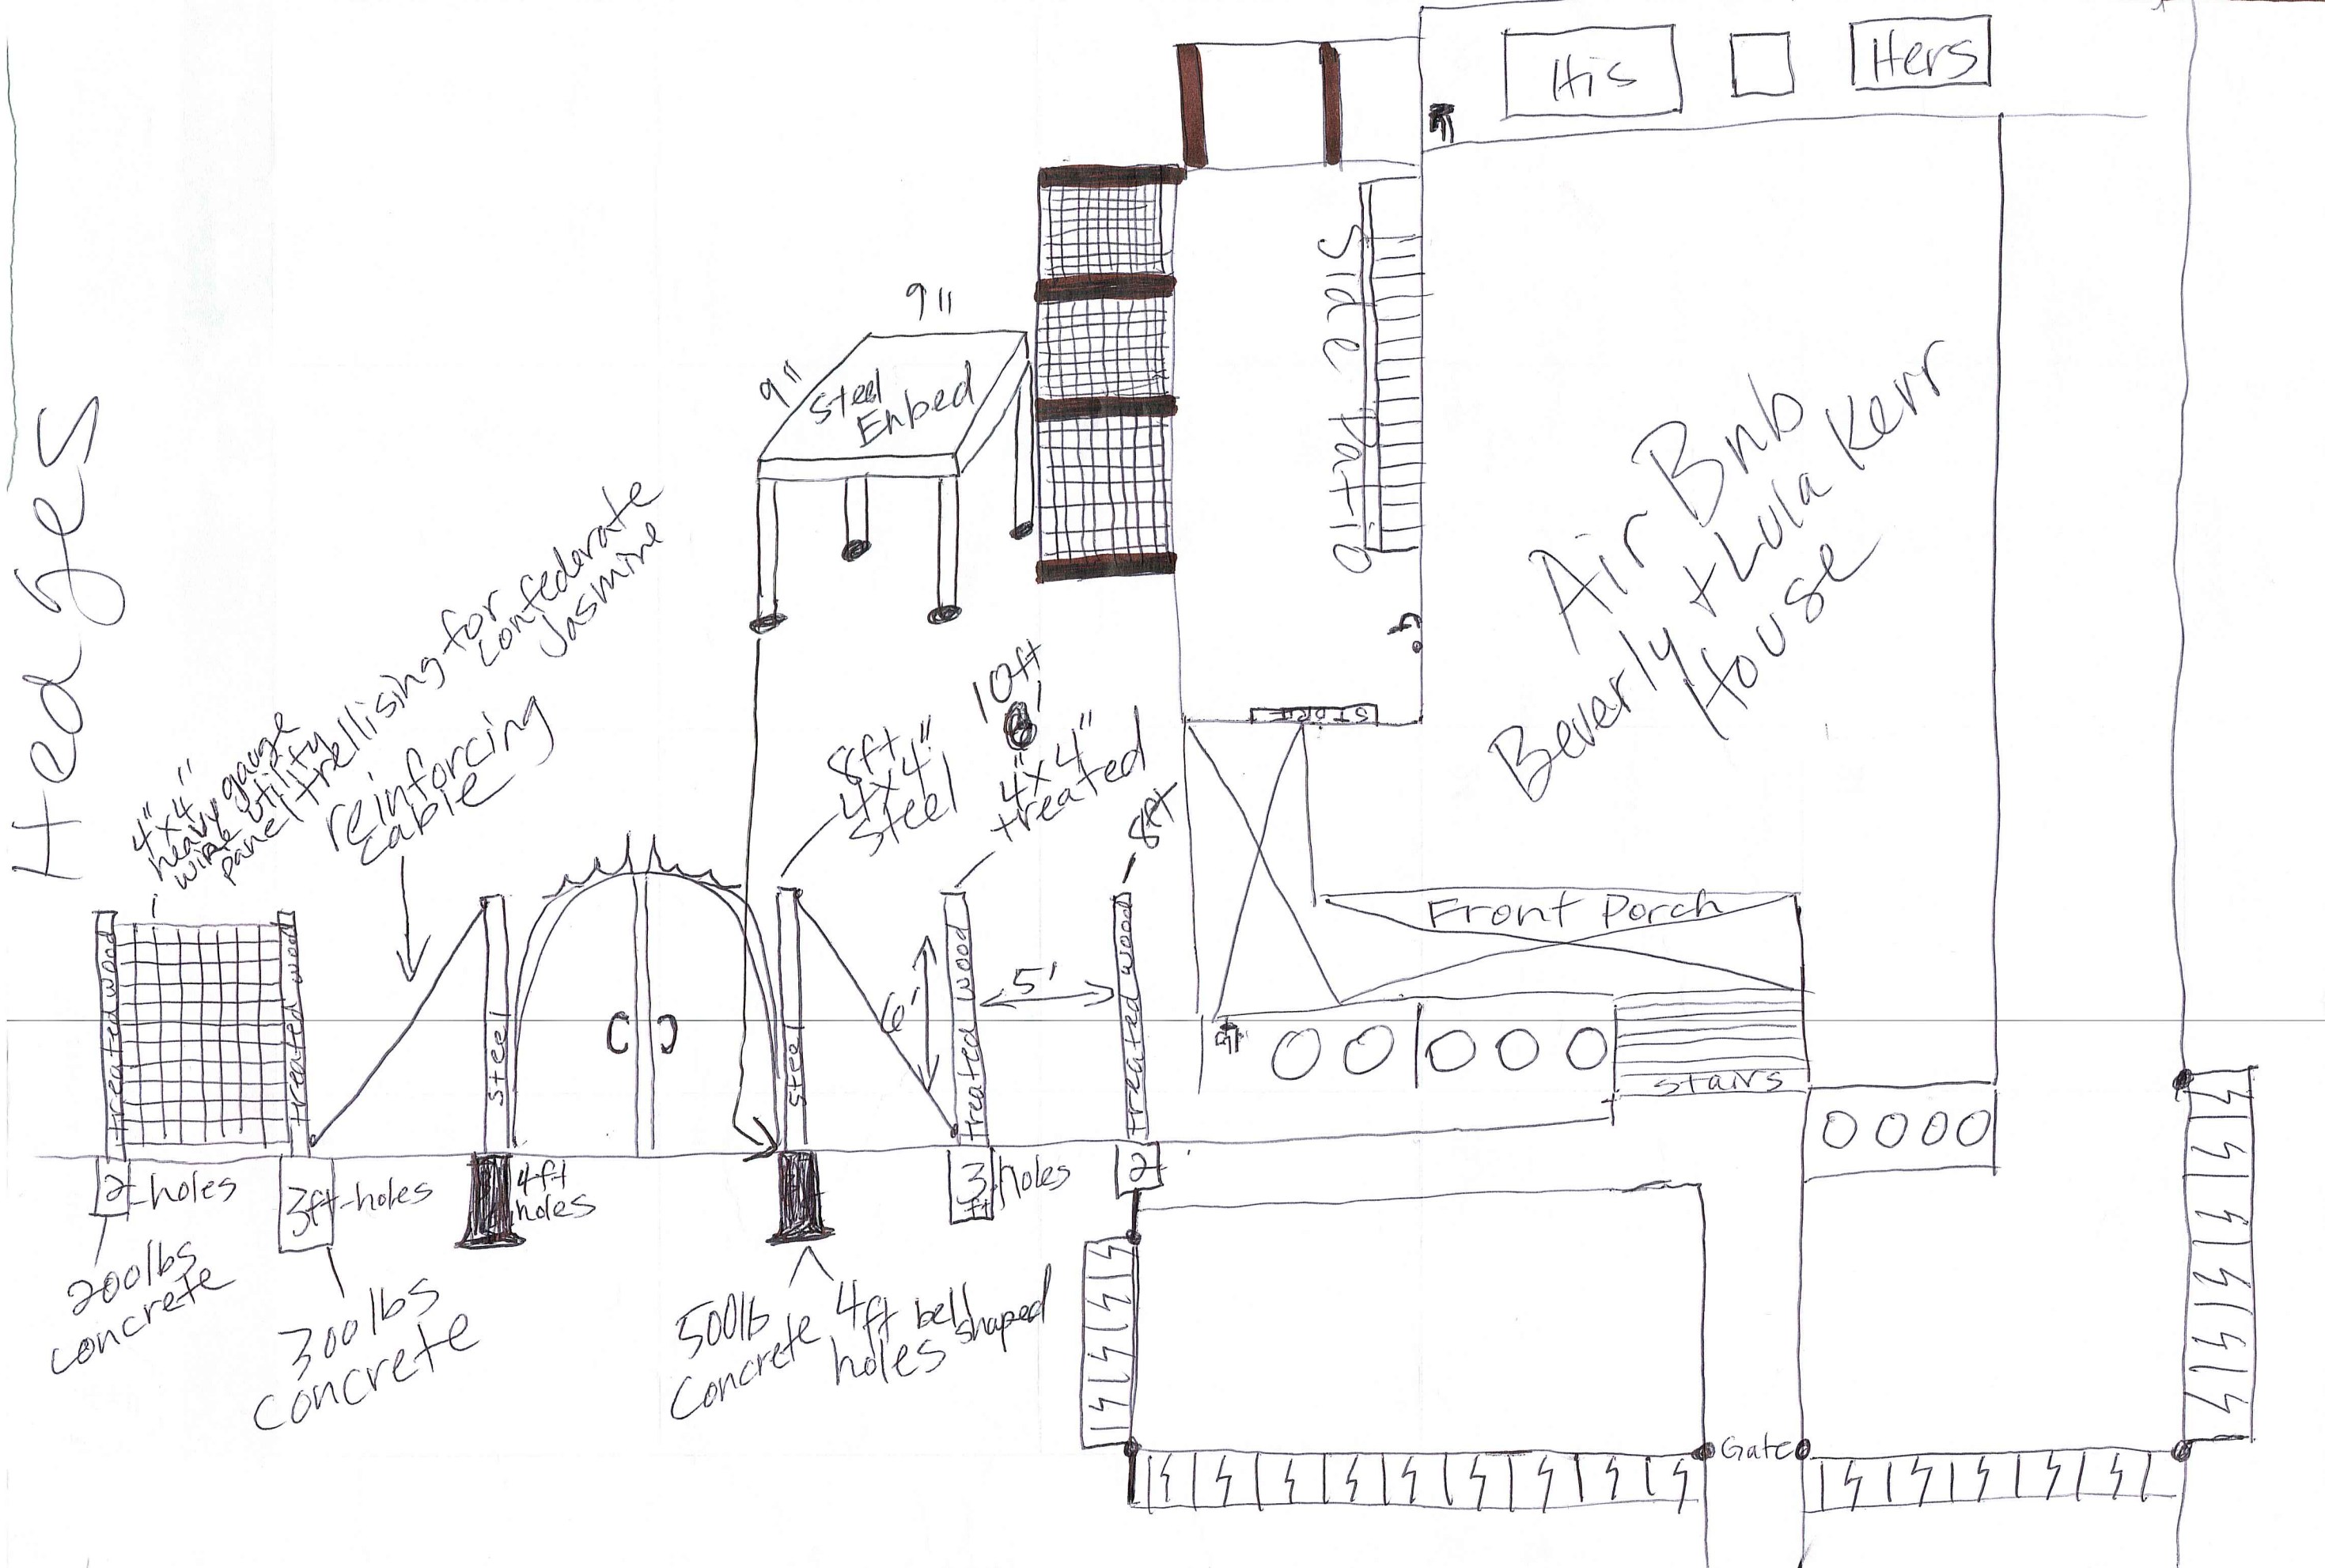 His
Hers
Hedges
Side Patio
Air Bnb
Beverly + Lula Kerr
House
9"
9"
Steel
Enbed
4"x4"
heavy gauge
wire utility
panel trellising for
confederate
Jasmine
reinforcing
cable
8ft
4x4"
Steel
10ft
4"x4"
treated
8ft
Front Porch
Stairs
treated wood
treated wood
steel
steel
6'
treated wood
5'
treated wood
2-holes
3ft-holes
4ft
holes
3
ft
holes
2
200lbs
concrete
300lbs
concrete
500lb
concrete
4ft bell
shaped
holes
Gate